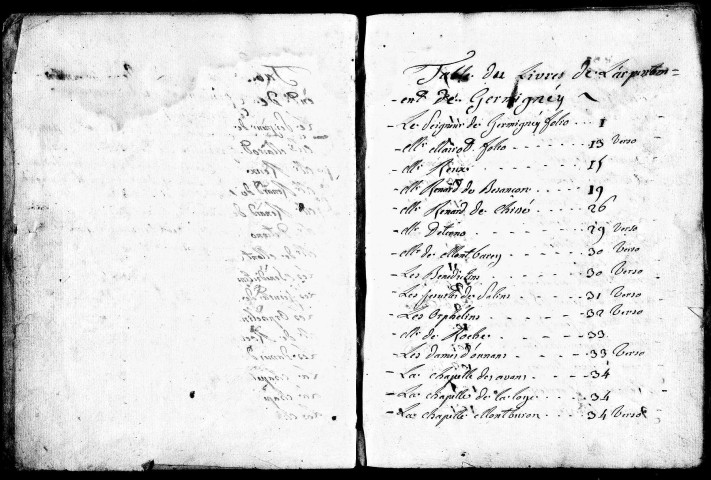 Table du Livres de L'arpentem=
ent de Germigney
- Le Seigneur de Germigney folio . . 1
- Mr Mairod folio - - - - 13 Verso
- Mr - - - - 15
- Mr Renard de Besancon - - - - 19
- Mr Renard de Chissé - - - - 26
- Mr - - - - 29 Verso
- Mr de Montbarey - - - - 30 Verso
- Les Benedictins - - - - 30 Verso
- Les Jesuites de Salins - - - - 31 Verso
- Les Orphelins - - - - 32 Verso
- Mr de Roche - - - - 33
- Les dames d'ornans - - - - 33 Verso
- La chapelle des avans - - - - 34
- La chapelle de la loye - - - - 34
- La chapelle - - - - 34 Verso